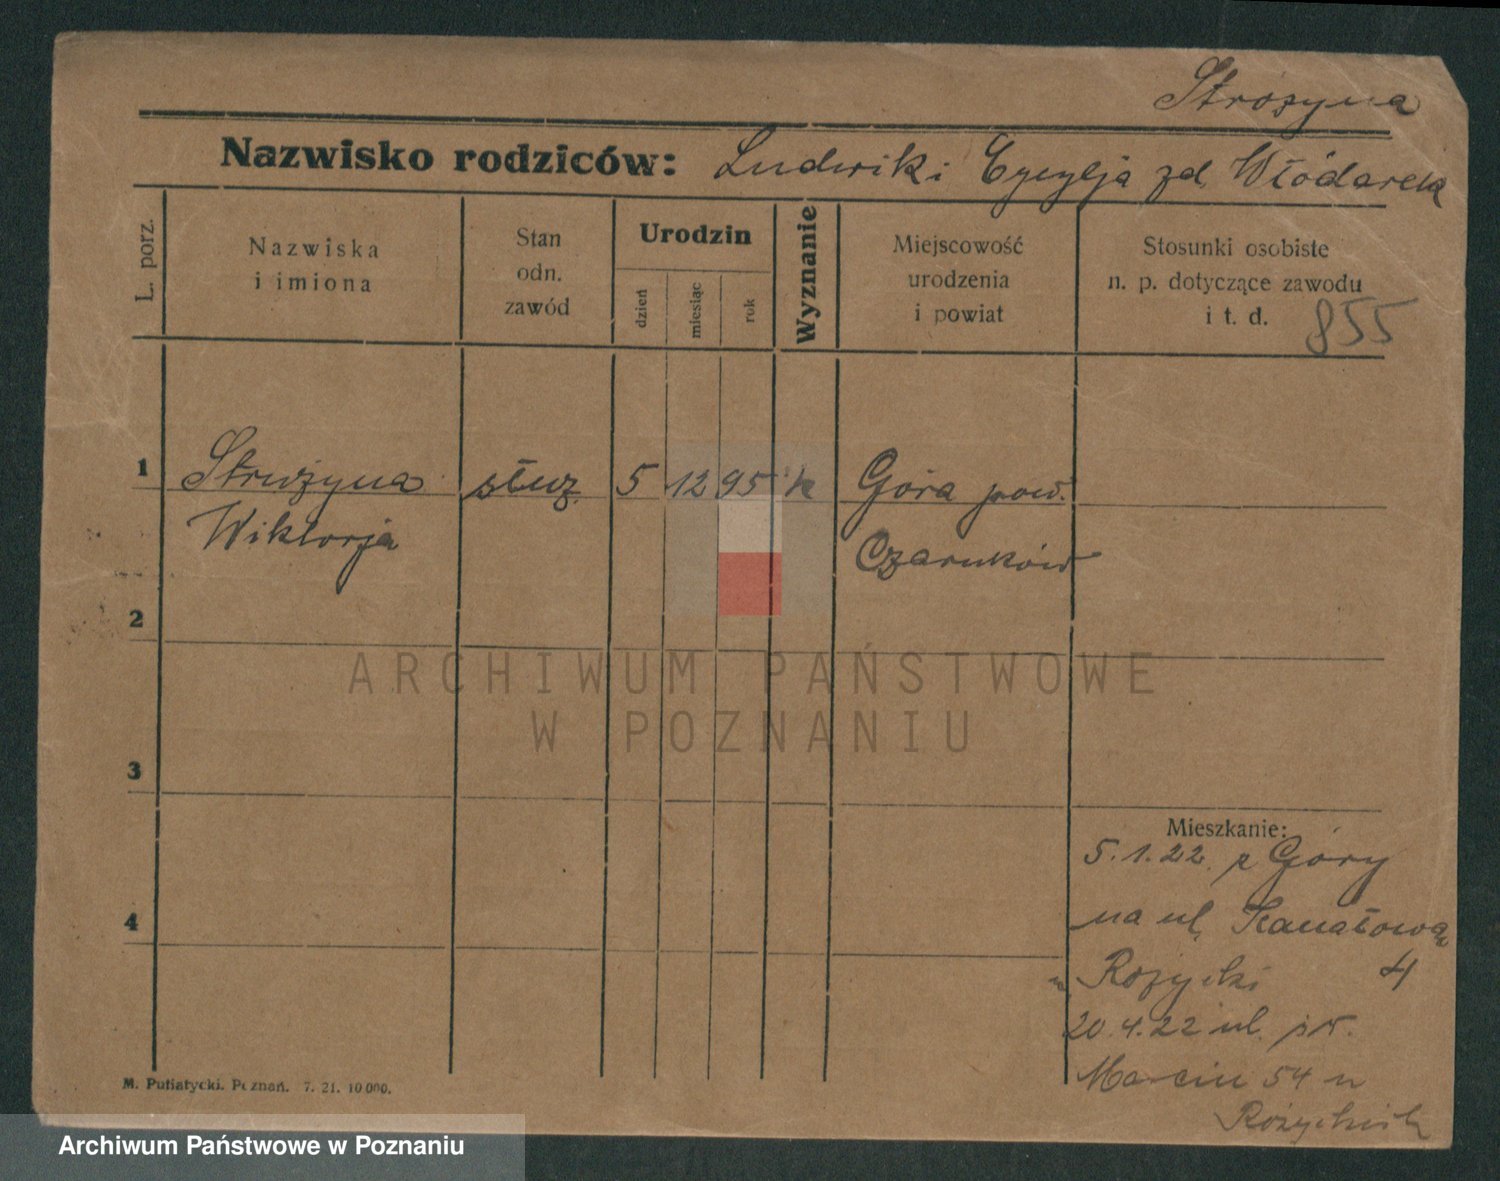 Strożyna
Nazwisko rodziców: Ludwik i Cycylja zd. Włódarek
L. porz.
Nazwiska
i imiona
Stan
odn.
zawód
Urodzin
dzień
miesiąc
rok
Wyznanie
Miejscowość
urodzenia
i powiat
Stosunki osobiste
n. p. dotyczące zawodu
i t. d.
855
1 Strużyna służ. 5 12 95 k Góra pow.
Wiktorja Czarnków
2
ARCHIWUM PAŃSTWOWE
W POZNANIU
3
Mieszkanie:
5.1.22 z Góry
4
na ul. Kanałową
Rożycki 4
20.4.22 ul. św.
Marcin 54 u
M. Putiatycki. Poznań. 7. 21. 10 000.
Archiwum Państwowe w Poznaniu